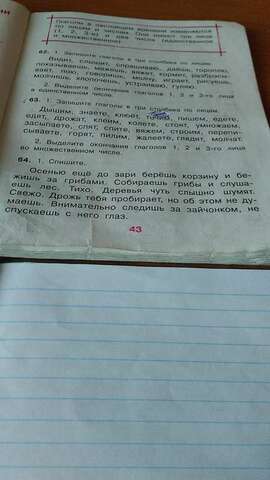 Глаголы в настоящем времени изменяются
(1, 2, 3-е) и числам
62. 1. Запишите глаголы в три столбика по лицам.
Видит, слышит, спрашиваю, давим, торопяю,
показываешь, мажешь, вяжет, кормит,
воет, пою, говоришь, молчу, играет, рисуешь,
молчишь, хлопочешь, устраиваю, гуляю.
2. Выделите окончания глаголов 1, 2 и 3-го лица
в единственном числе.
63. 1. Запишите глаголы в три столбика по лицам.
Дышим, знаете, клюёт, точим, пишем, едете,
едят, дрожат, клеим, колете, стоят, умножаем,
засыпаете, спят, спите, вяжем, строим,
сываете, горят, пилим, жалеете, глядят, молчат.
2. Выделите окончания глаголов 1, 2 и 3-го лица
во множественном числе.
64. 1. Спишите.
Осенью ещё до зари берёшь корзину и бе-
жишь за грибами. Собираешь грибы и слуша-
ешь лес. Тихо. Деревья чуть слышно шумят.
Свежо. Дрожь тебя пробирает, но об этом не ду-
маешь. Внимательно следишь за зайчонком, не
спускаешь с него глаз.
43